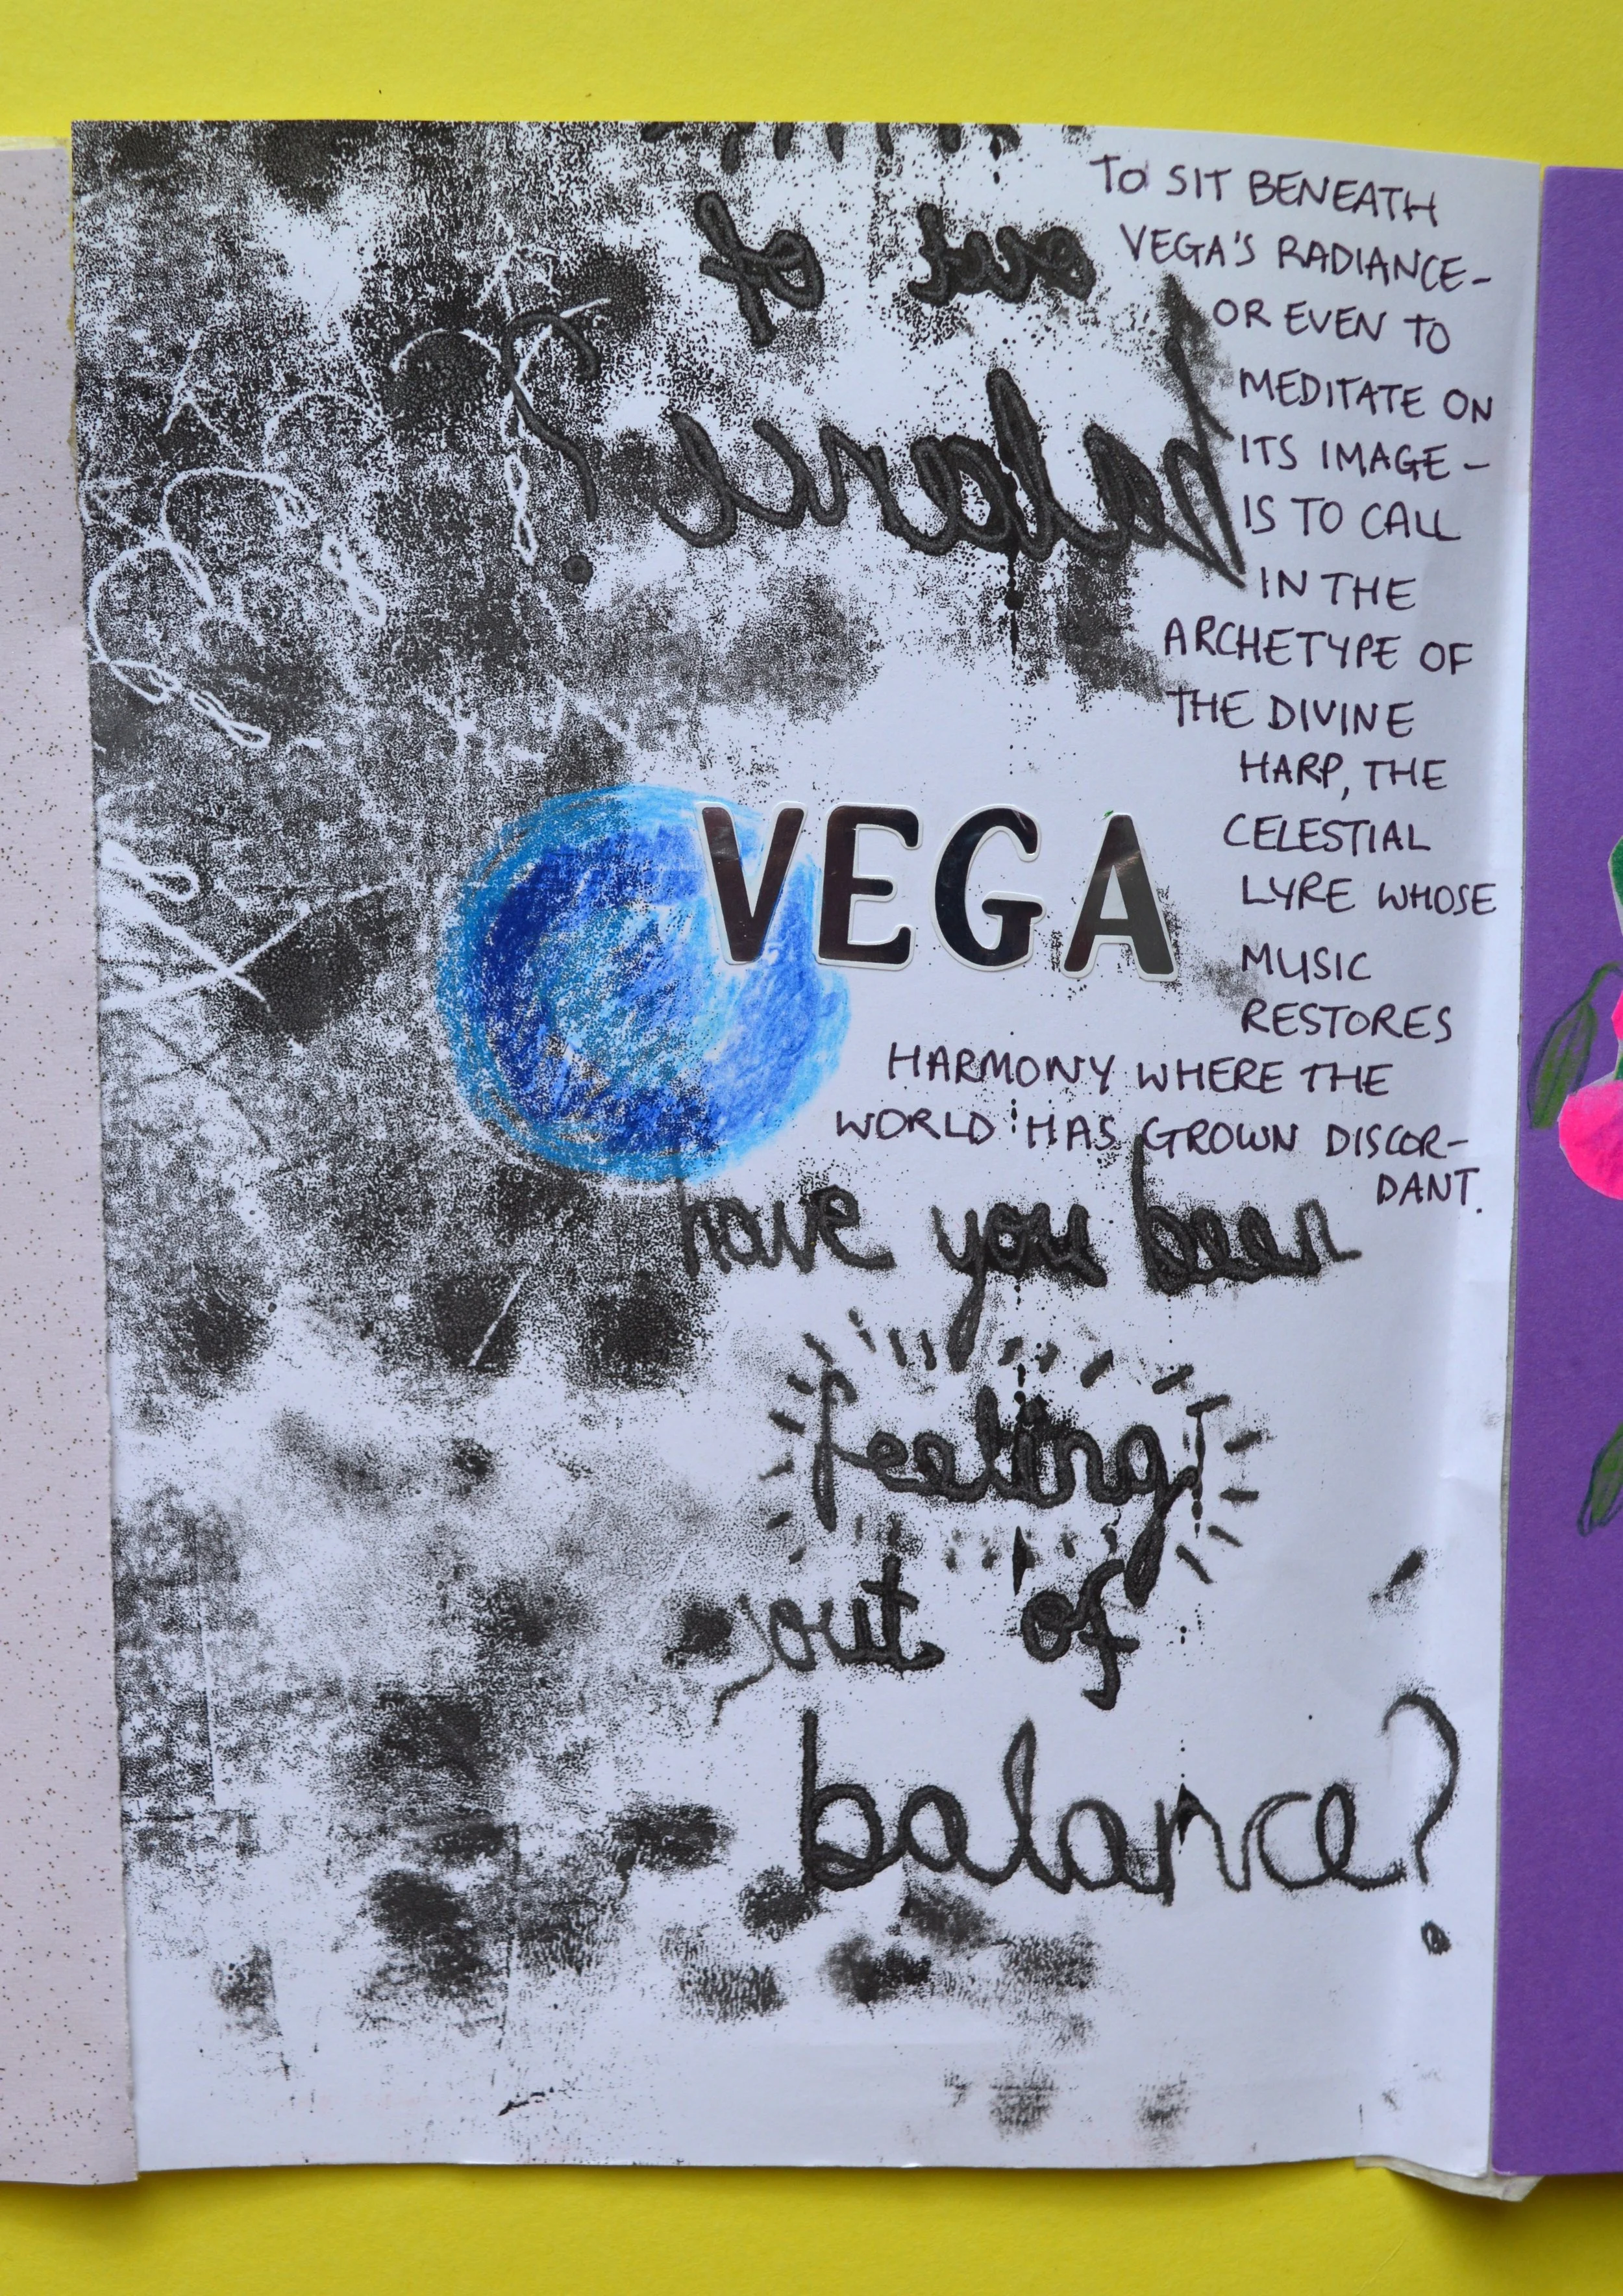 out of
balance?
TO SIT BENEATH
VEGA'S RADIANCE-
OR EVEN TO
MEDITATE ON
ITS IMAGE -
IS TO CALL
IN THE
ARCHETYPE OF
THE DIVINE
HARP, THE
CELESTIAL
LYRE WHOSE
MUSIC
RESTORES
HARMONY WHERE THE
WORLD HAS GROWN DISCOR-
DANT.
VEGA
have you been
feeling
out of
balance?